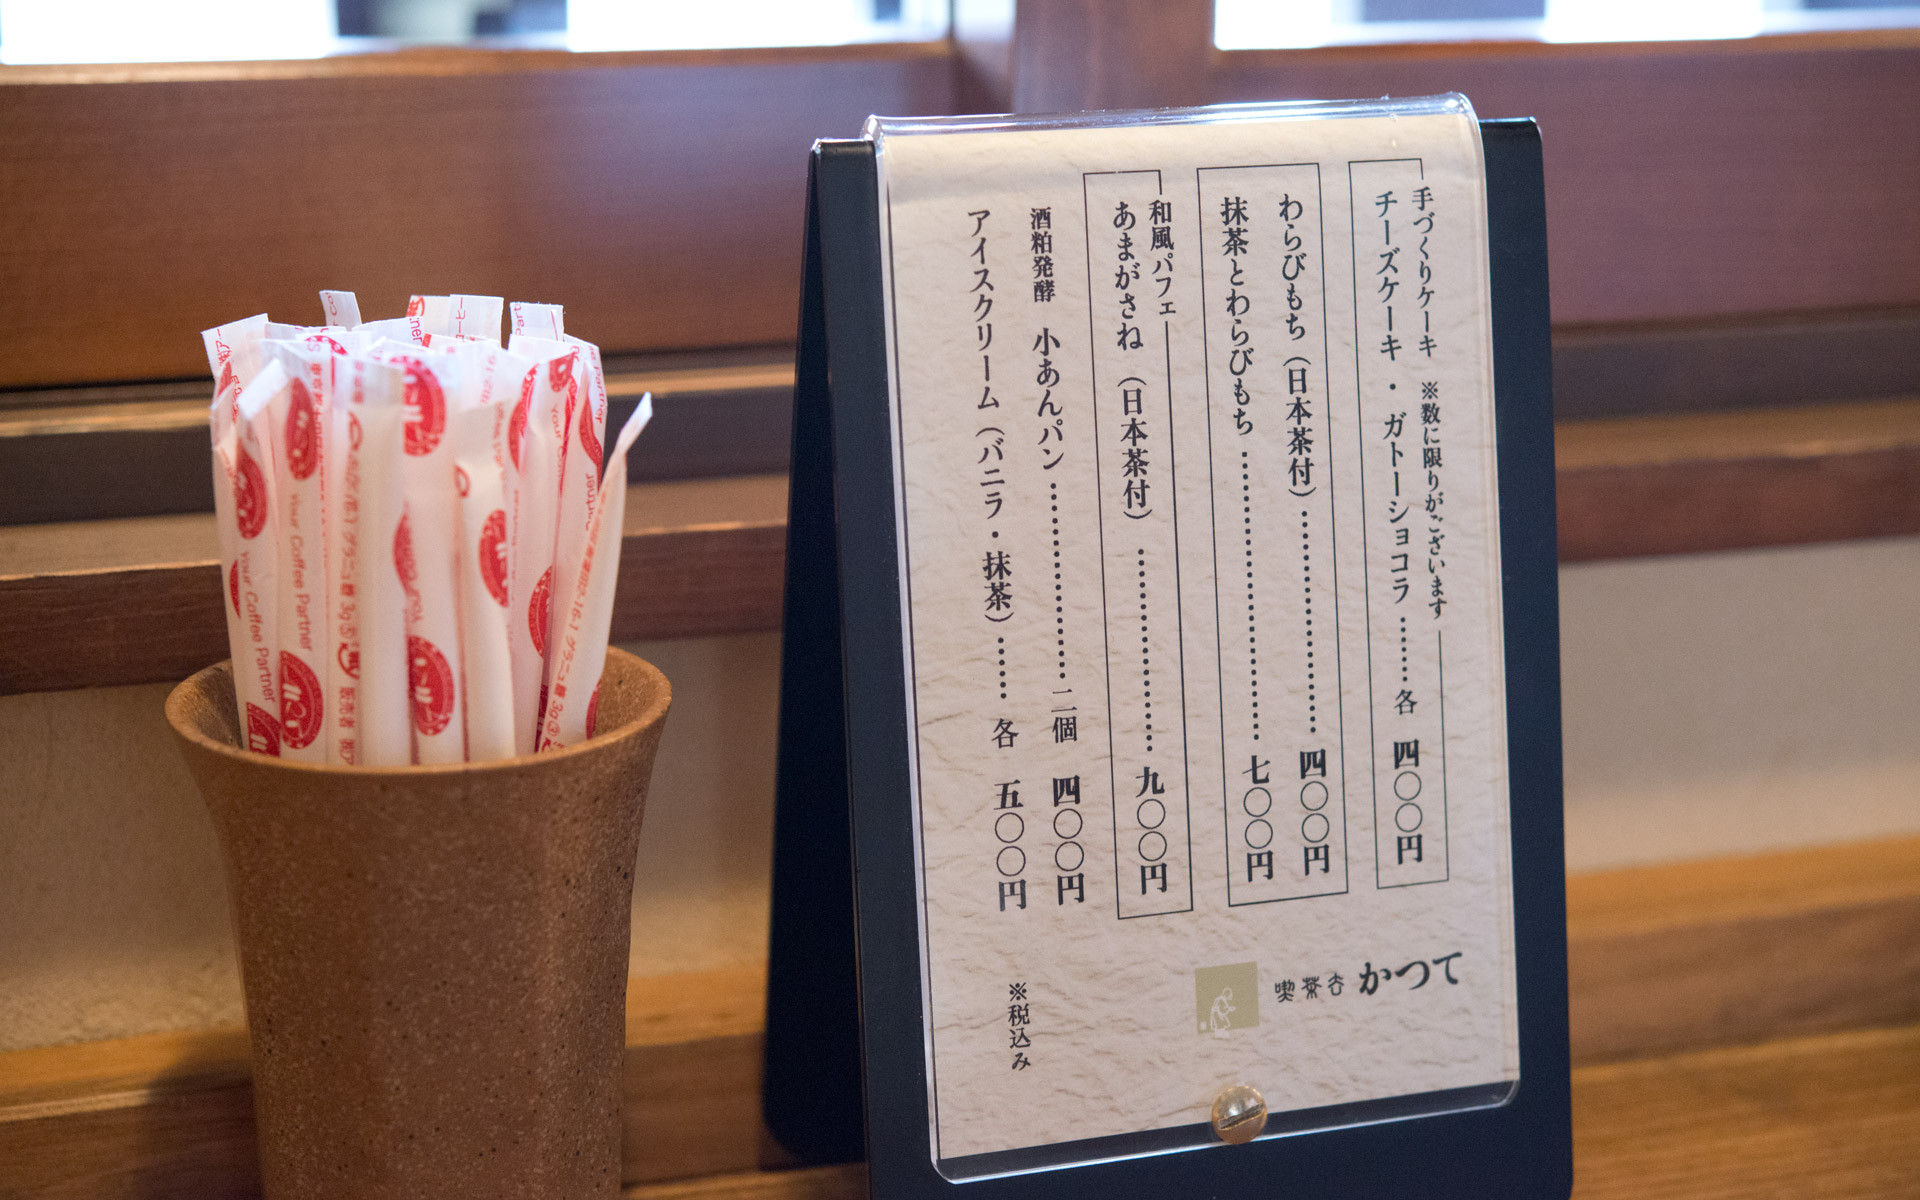 手づくりケーキ ※数に限りがございます
チーズケーキ・ガトーショコラ ……… 各 四〇〇円
わらびもち（日本茶付）……………………… 四〇〇円
抹茶とわらびもち ……………………………… 七〇〇円
和風パフェ
あまがさね（日本茶付）……………………… 九〇〇円
酒粕発酵 小あんパン …………………… 二個 四〇〇円
アイスクリーム（バニラ・抹茶）……… 各 五〇〇円
※税込み
喫茶去 かつて
Your Coffee Partner
Your Coffee Partner
グラニュ糖 3g
グラニュ糖 3g
販売者